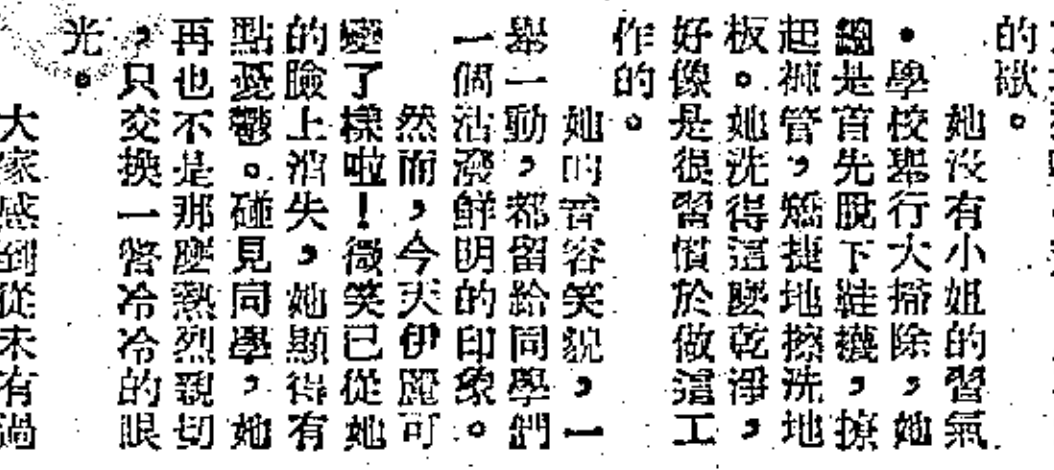 的歌。
她沒有小姐的習氣
。學校舉行大掃除，她
總是首先脫下鞋襪，撩
起褲管，矯捷地擦洗地
板。她洗得這麼乾淨，
好像是很習慣於做這工
作的。
她的音容笑貌，一
舉一動，都留給同學們
一個活潑鮮明的印象。
然而，今天伊麗可
變了樣啦！微笑已從她
的臉上消失，她顯得有
點憂鬱。碰見同學，她
再也不是那麼熱烈親切
，只交換一瞥冷冷的眼
光。
大家感到從未有過